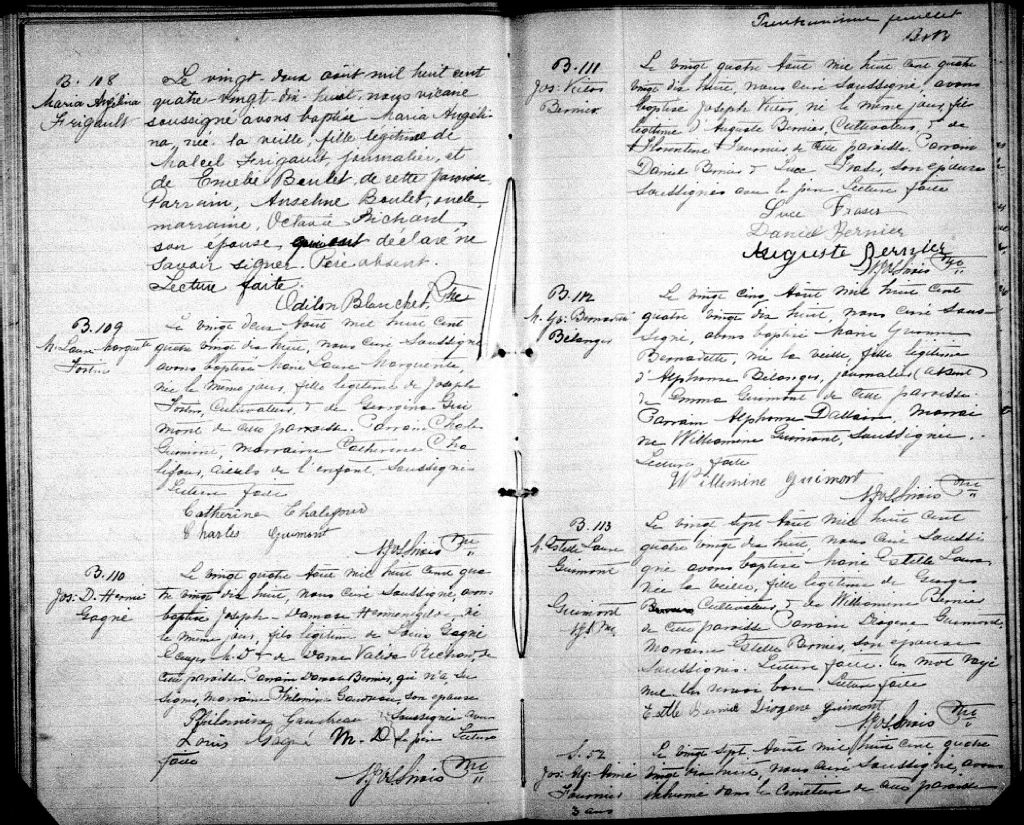 B. 108
Maria Angelina
Frigault
Le vingt-deux août mil huit cent
quatre vingt-dix-huit, nous vicaire
soussigné avons baptisé Maria Angéli-
na, née la veille, fille légitime de
Frigault, journalier, et
de Boulet de cette paroisse.
Parrain, Anselme Boulet, oncle,
marraine, Octavie Richard,
son épouse, qui ont déclaré ne
savoir signer. Père absent.
Lecture faite.
Odilon Blanchet, Ptre
B. 109
M. Laure Margte
Fortin
Le vingt deux Aout mil huit cent
quatre vingt dix huit, nous curé soussigné
avons baptisé Marie Laure Marguerite,
née le même jour, fille légitime de Joseph
Fortin, Cultivateur, & de Georgina Gui
mont de cette paroisse. Parrain Charles
Guimont, marraine Catherine Cha
lifour, aieuls de l'enfant, soussignés
Lecture faite
Catherine Chalifour
Charles Guimont
Ptre
B. 110
Jos. D. Herméné
Gagné
Le vingt quatre Aout mil huit cent qua
tre vingt dix huit, nous curé soussigné, avons
baptisé Joseph-Damase Herménégilde, né
le même jour, fils légitime de Louis Gagné
Ecuyer M.D & de Dame Valéda Richard, de
cette paroisse. Parrain Damase Bernier, qui n'a su
signer, marraine Philomène Gaudreau, son épouse
Philomène Gaudreau soussignée avec
Louis Gagné M.D le père Lecture
faite
Ptre
feuillet
B. 111
Jos. Victor
Bernier
Le vingt quatre Aout mil huit cent quatre
vingt dix huit, nous curé soussigné, avons
baptisé Joseph Victor, né le même jour, fils
légitime d'Auguste Bernier, Cultivateur, & de
Florentine Fournier de cette paroisse. Parrain
Daniel Bernier & Luce Fraser, son épouse
soussignés avec le père. Lecture faite
Luce Fraser
Daniel Bernier
Auguste Bernier
Ptre
B. 112
M. Bernadette
Bélanger
Le vingt cinq Aout mil huit cent
quatre vingt dix huit, nous curé sous-
signé, avons baptisé Marie
Bernadette, née la veille, fille légitime
d'Alphonse Bélanger, journalier (absent)
de Emma Guimont de cette paroisse
Parrain Alphonse Dallaire, marrai
ne Williamine Guimont, soussignée.
Lecture faite
Willemine Guimont
Ptre
B. 113
M. Estelle Laure
Guimont
Guimond
Ptre
Le vingt sept Aout mil huit cent
quatre vingt dix huit, nous curé soussi
gné avons baptisé Marie Estelle Laure
née la veille, fille légitime de Georges
Cultivateur, & de Williamine Bernier
de cette paroisse Parrain Diogène Guimond,
Marraine Estelle Bernier, son épouse
soussignés. Lecture faite. Un mot rayé
nul. Un renvoi bon. Lecture faite
Estlle Bernier Diogene Guimont
Ptre
S. 52
Jos. Alp. Aimé
Fournier
3 ans
Le vingt sept Aout mil huit cent quatre
vingt dix huit, nous curé soussigné, avons
inhumé dans le cimetière de cette paroisse